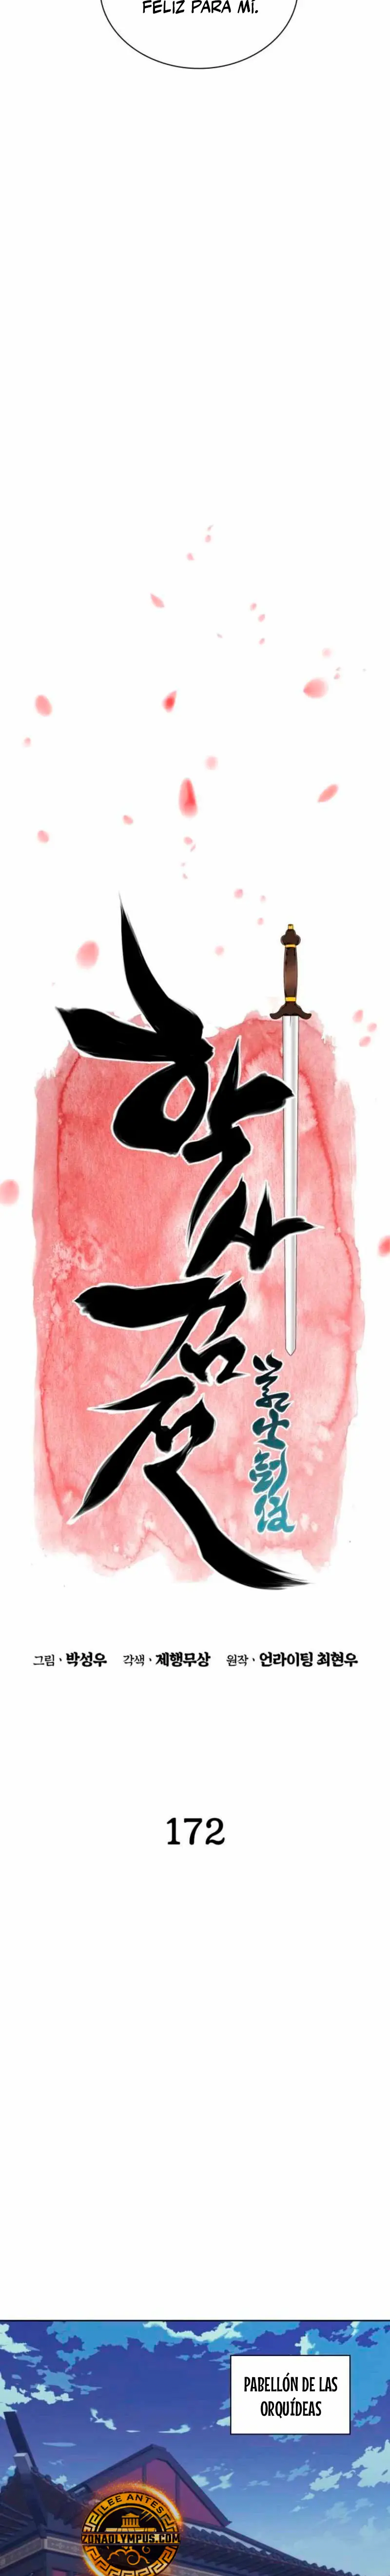 FELIZ PARA MÍ.
학사
검전
學士劍傳
그림 · 박성우 각색 · 제행무상 원작 · 언라이팅 최현우
172
PABELLÓN DE LAS
ORQUÍDEAS
LEE ANTES
ZONAOLYMPUS.COM